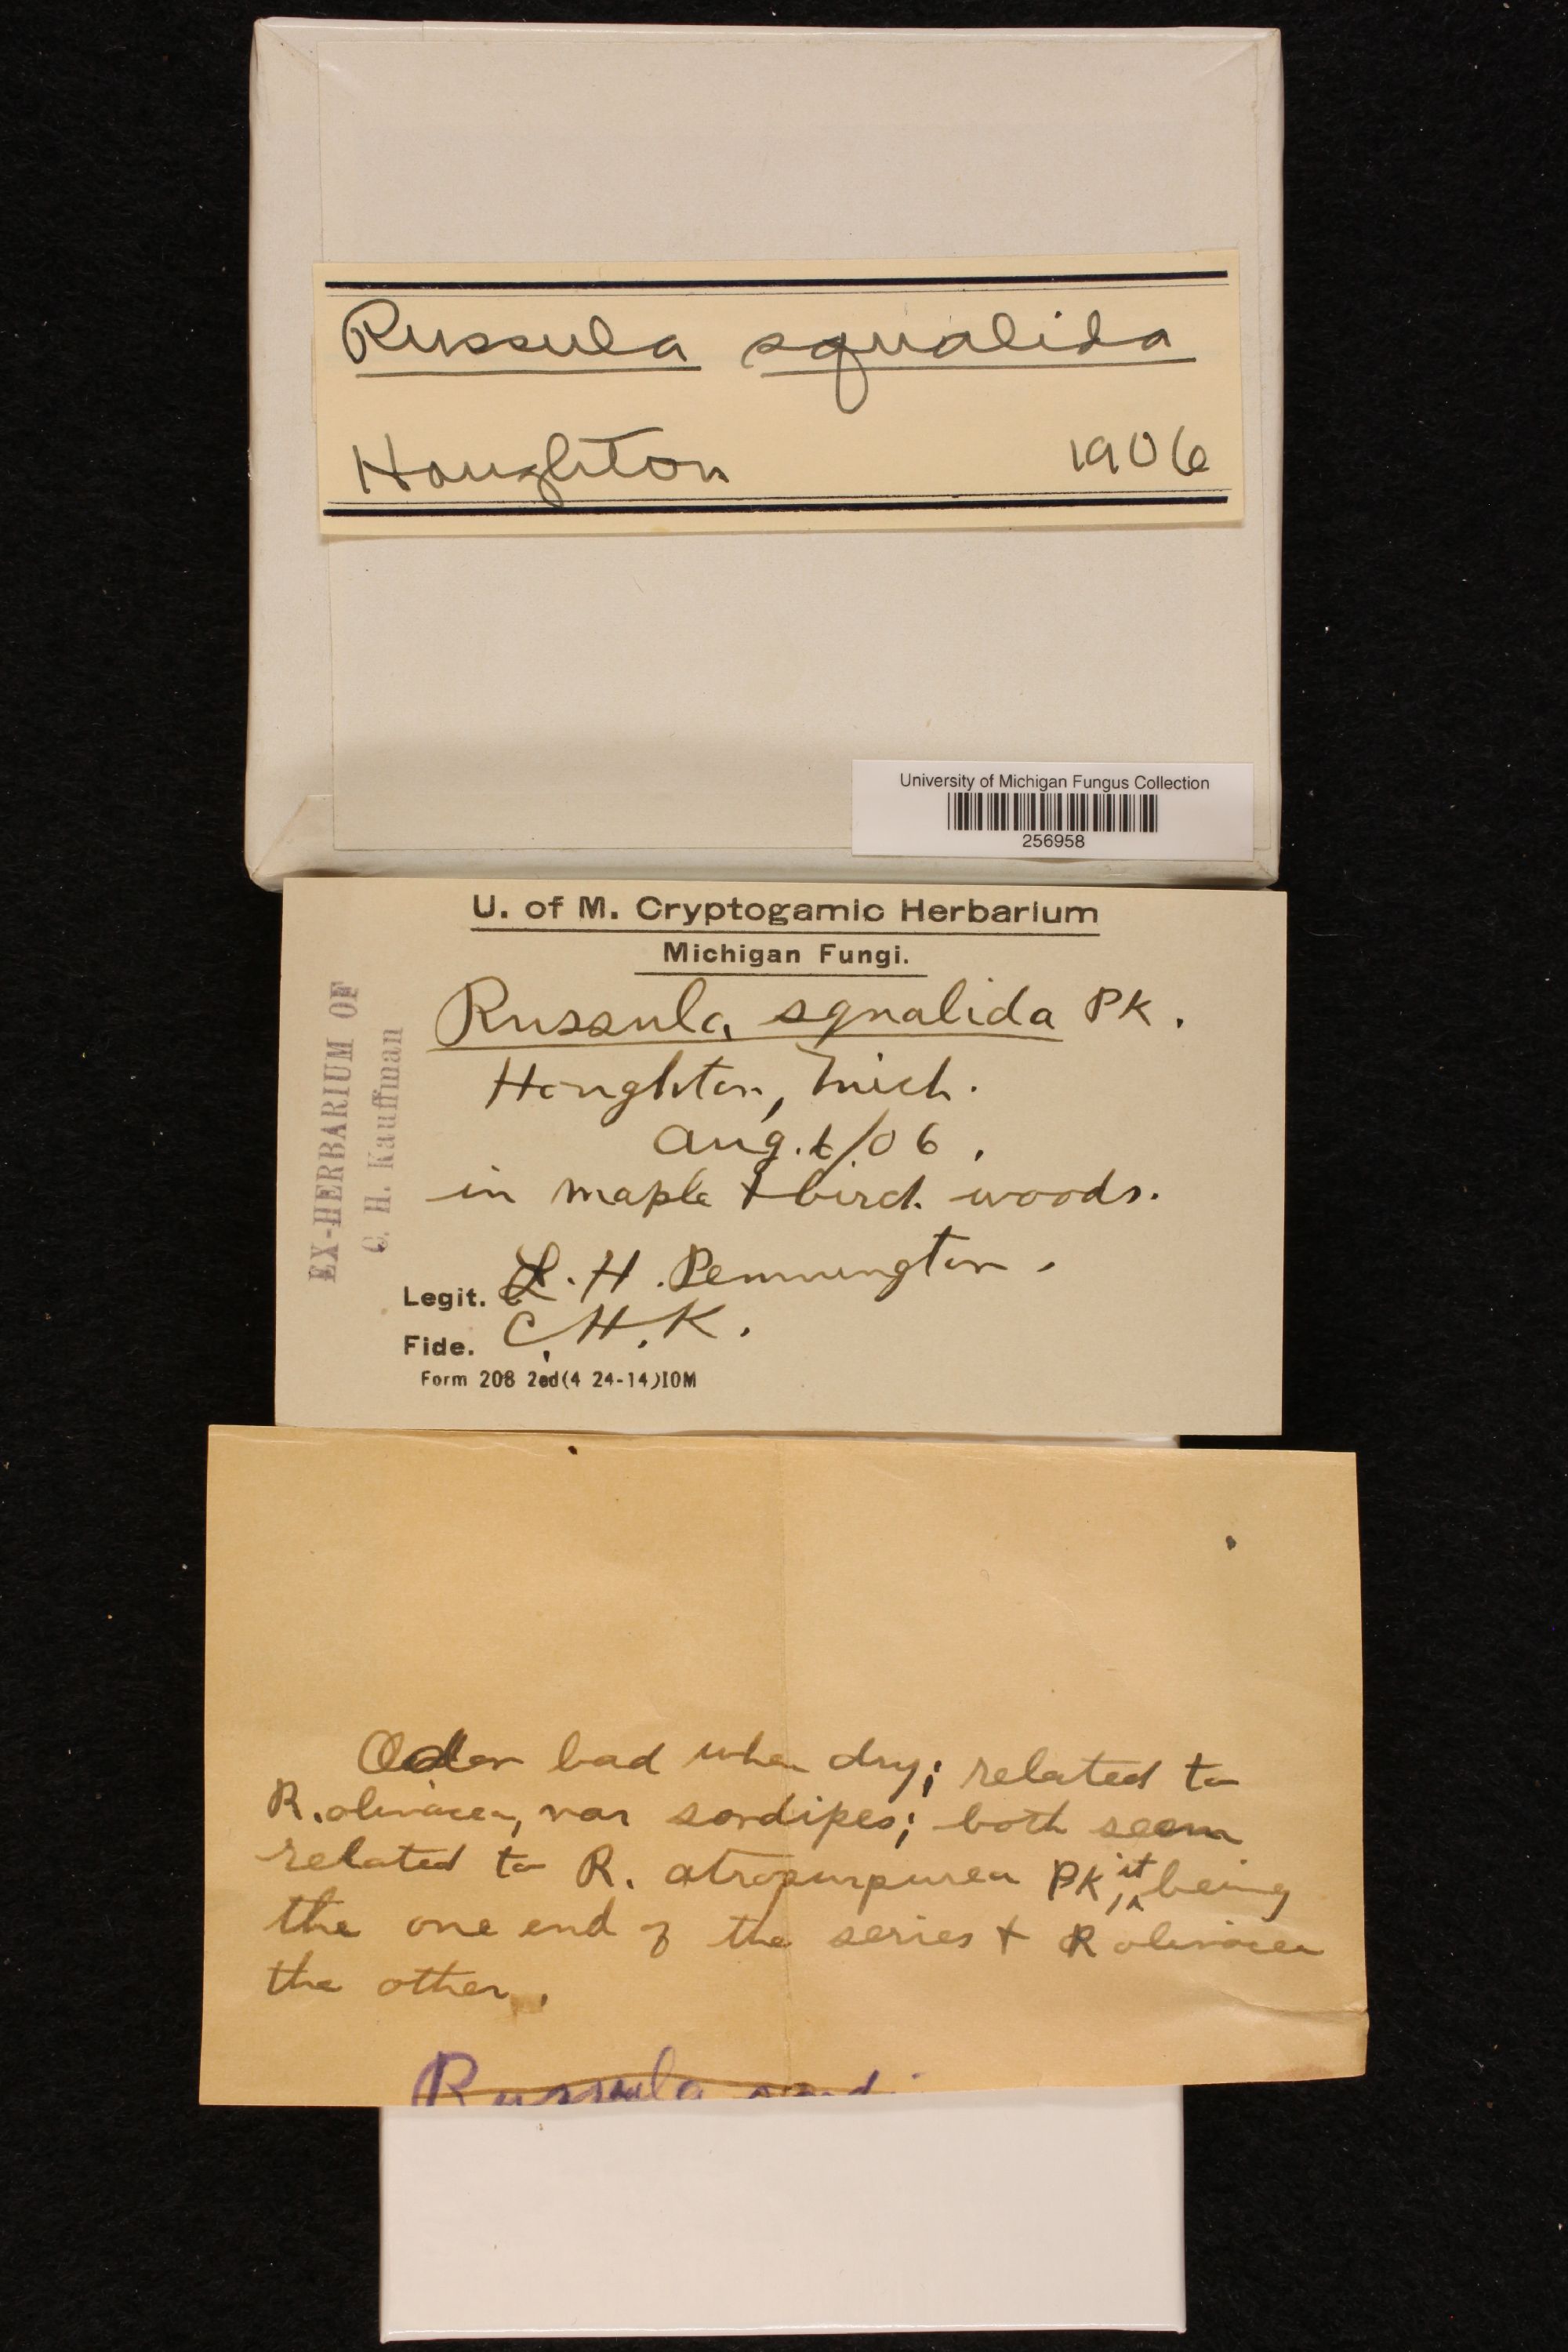 Russula squalida
Houghton 1906
University of Michigan Fungus Collection
256958
U. of M. Cryptogamic Herbarium
Michigan Fungi.
EX-HERBARIUM OF
C. H. Kauffman
Russula squalida PK.
Houghton, Mich.
Aug. 6/06.
in maple + birch woods.
Legit. L. H. Pennington.
Fide. C. H. K.
Form 208 2ed(4 24-14)10M
Odor bad when dry; related to
R. olivacea, var sordipes; both seem
related to R. atropurpurea PK, it being
the one end of the series + R olivacea
the other.
Russula